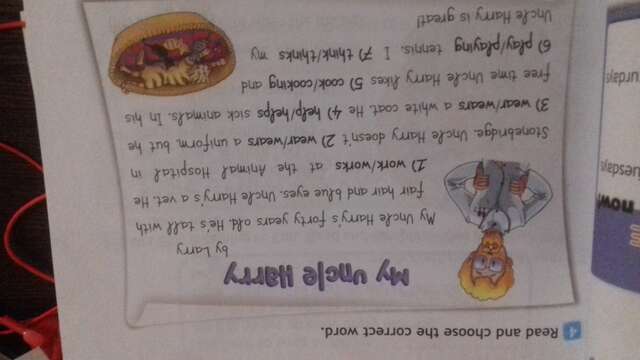 4 Read and choose the correct word.
My Uncle Harry
by Larry
My Uncle Harry's forty years old. He's tall with
fair hair and blue eyes. Uncle Harry's a vet. He
1) work/works at the Animal Hospital in
Stonebridge. Uncle Harry doesn't 2) wear/wears a uniform, but he
3) wear/wears a white coat. He 4) help/helps sick animals. In his
free time Uncle Harry likes 5) cook/cooking and
6) play/playing tennis. I 7) think/thinks my
Uncle Harry is great!
now
uesdays
urdays